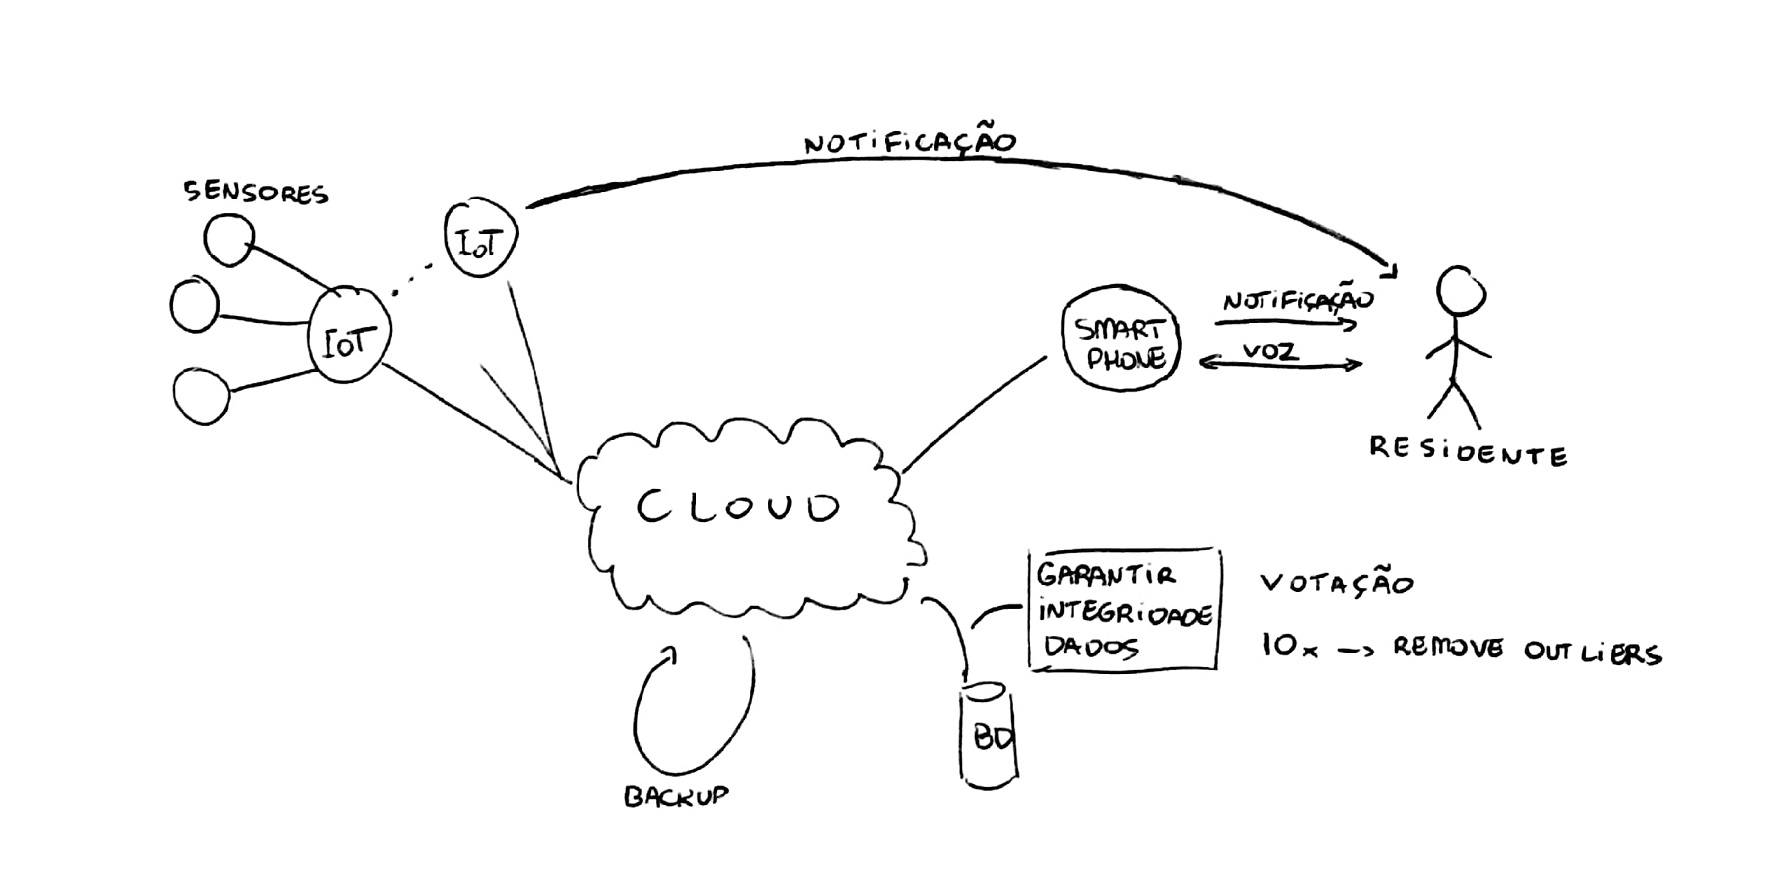 NOTIFICAÇÃO
SENSORES
IoT
IoT
SMART
PHONE
NOTIFICAÇÃO
VOZ
RESIDENTE
CLOUD
GARANTIR
INTEGRIDADE
DADOS
VOTAÇÃO
10x -> REMOVE OUTLIERS
BD
BACKUP